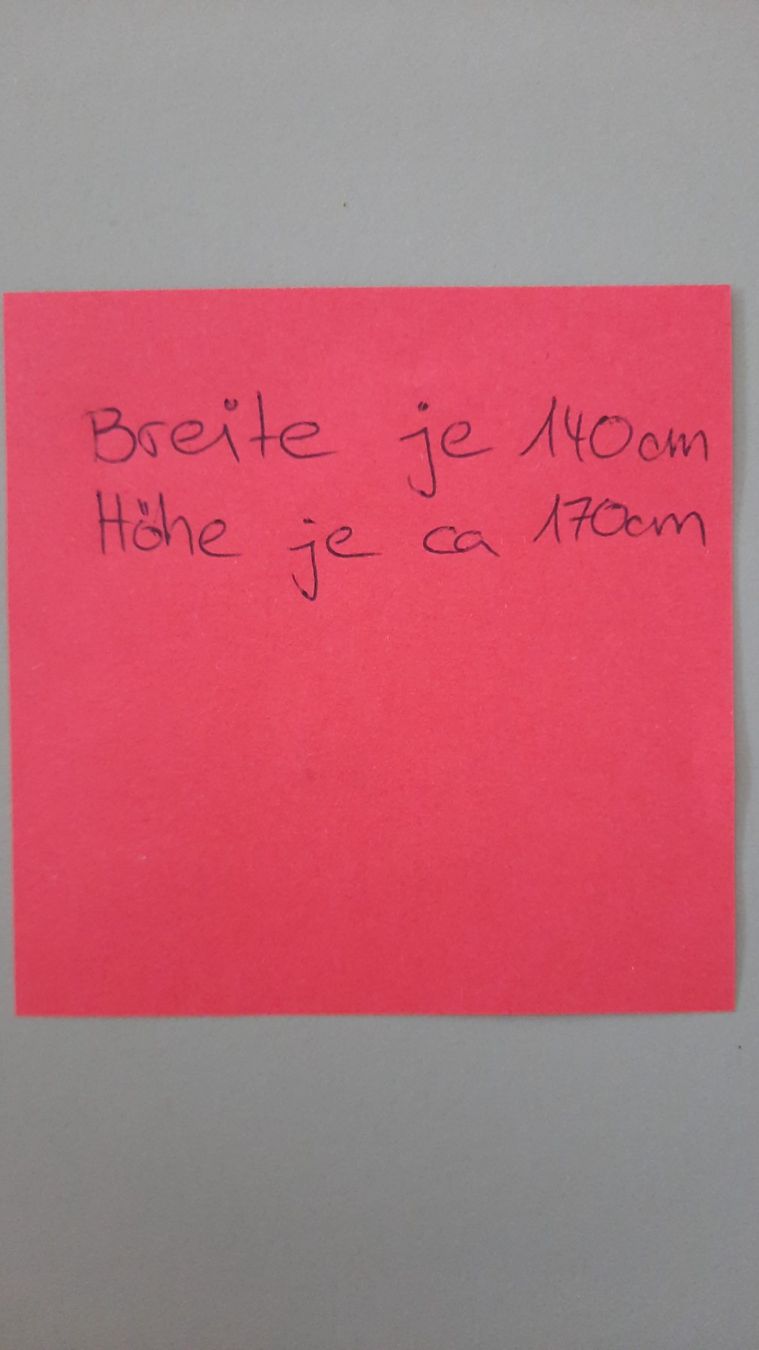 Breite je 140cm
Höhe je ca 170cm